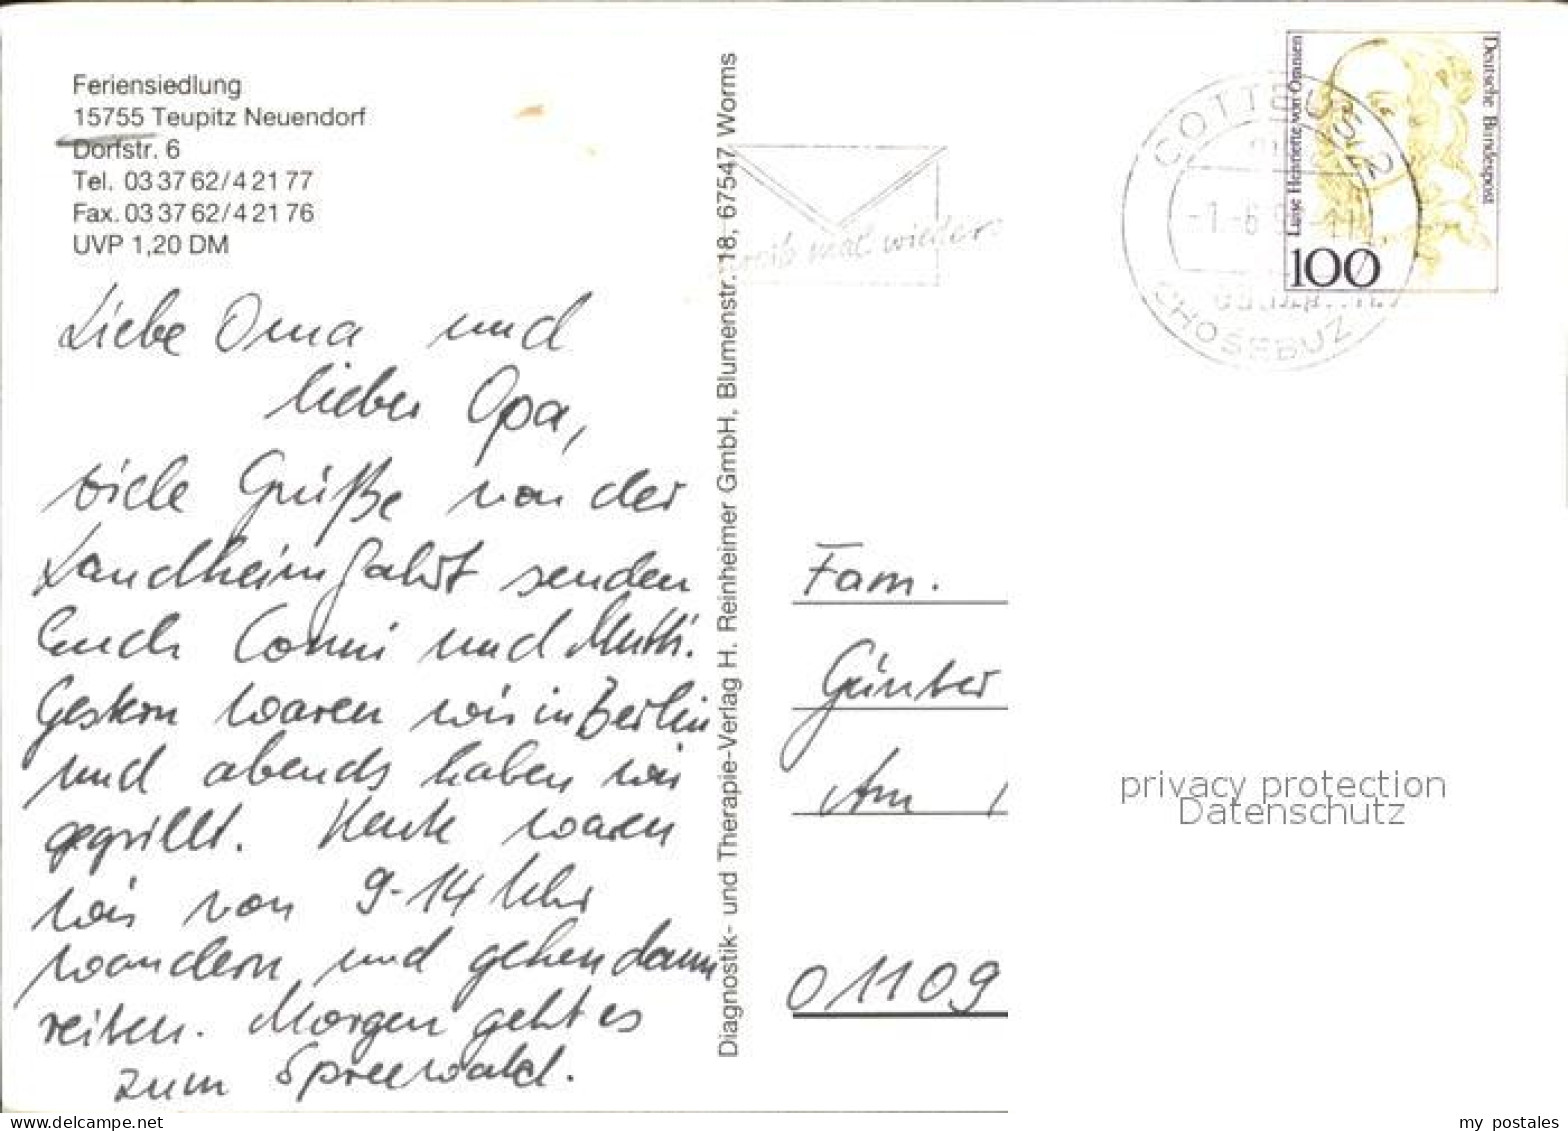 Feriensiedlung
15755 Teupitz Neuendorf
Dorfstr. 6
Tel. 03 37 62/4 21 77
Fax. 03 37 62/4 21 76
UVP 1,20 DM
Liebe Oma und
lieber Opa,
viele Grüße von der
Landheimfahrt senden
Euch Conni und Mutti.
Gestern waren wir in Berlin
und abends haben wir
gegrillt. Heute waren
wir von 9-14 Uhr
wandern und gehen dann
reiten. Morgen geht es
zum Spreewald.
Diagnostik- und Therapie-Verlag H. Reinheimer GmbH, Blumenstr. 18, 67547 Worms
mal wieder
COTTBUS 2
-1.-6.
CHOSEBUZ
Luise Henriette von Oranien
Deutsche Bundespost
100
Fam.
Günter
Am
01109
privacy protection
Datenschutz
www.delcampe.net
my_postales